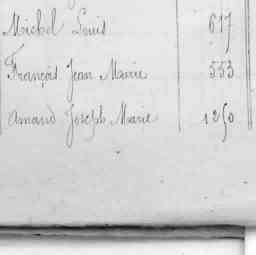 Michel Louis 617
François Jean Marie 553
Amand Joseph Marie 1250